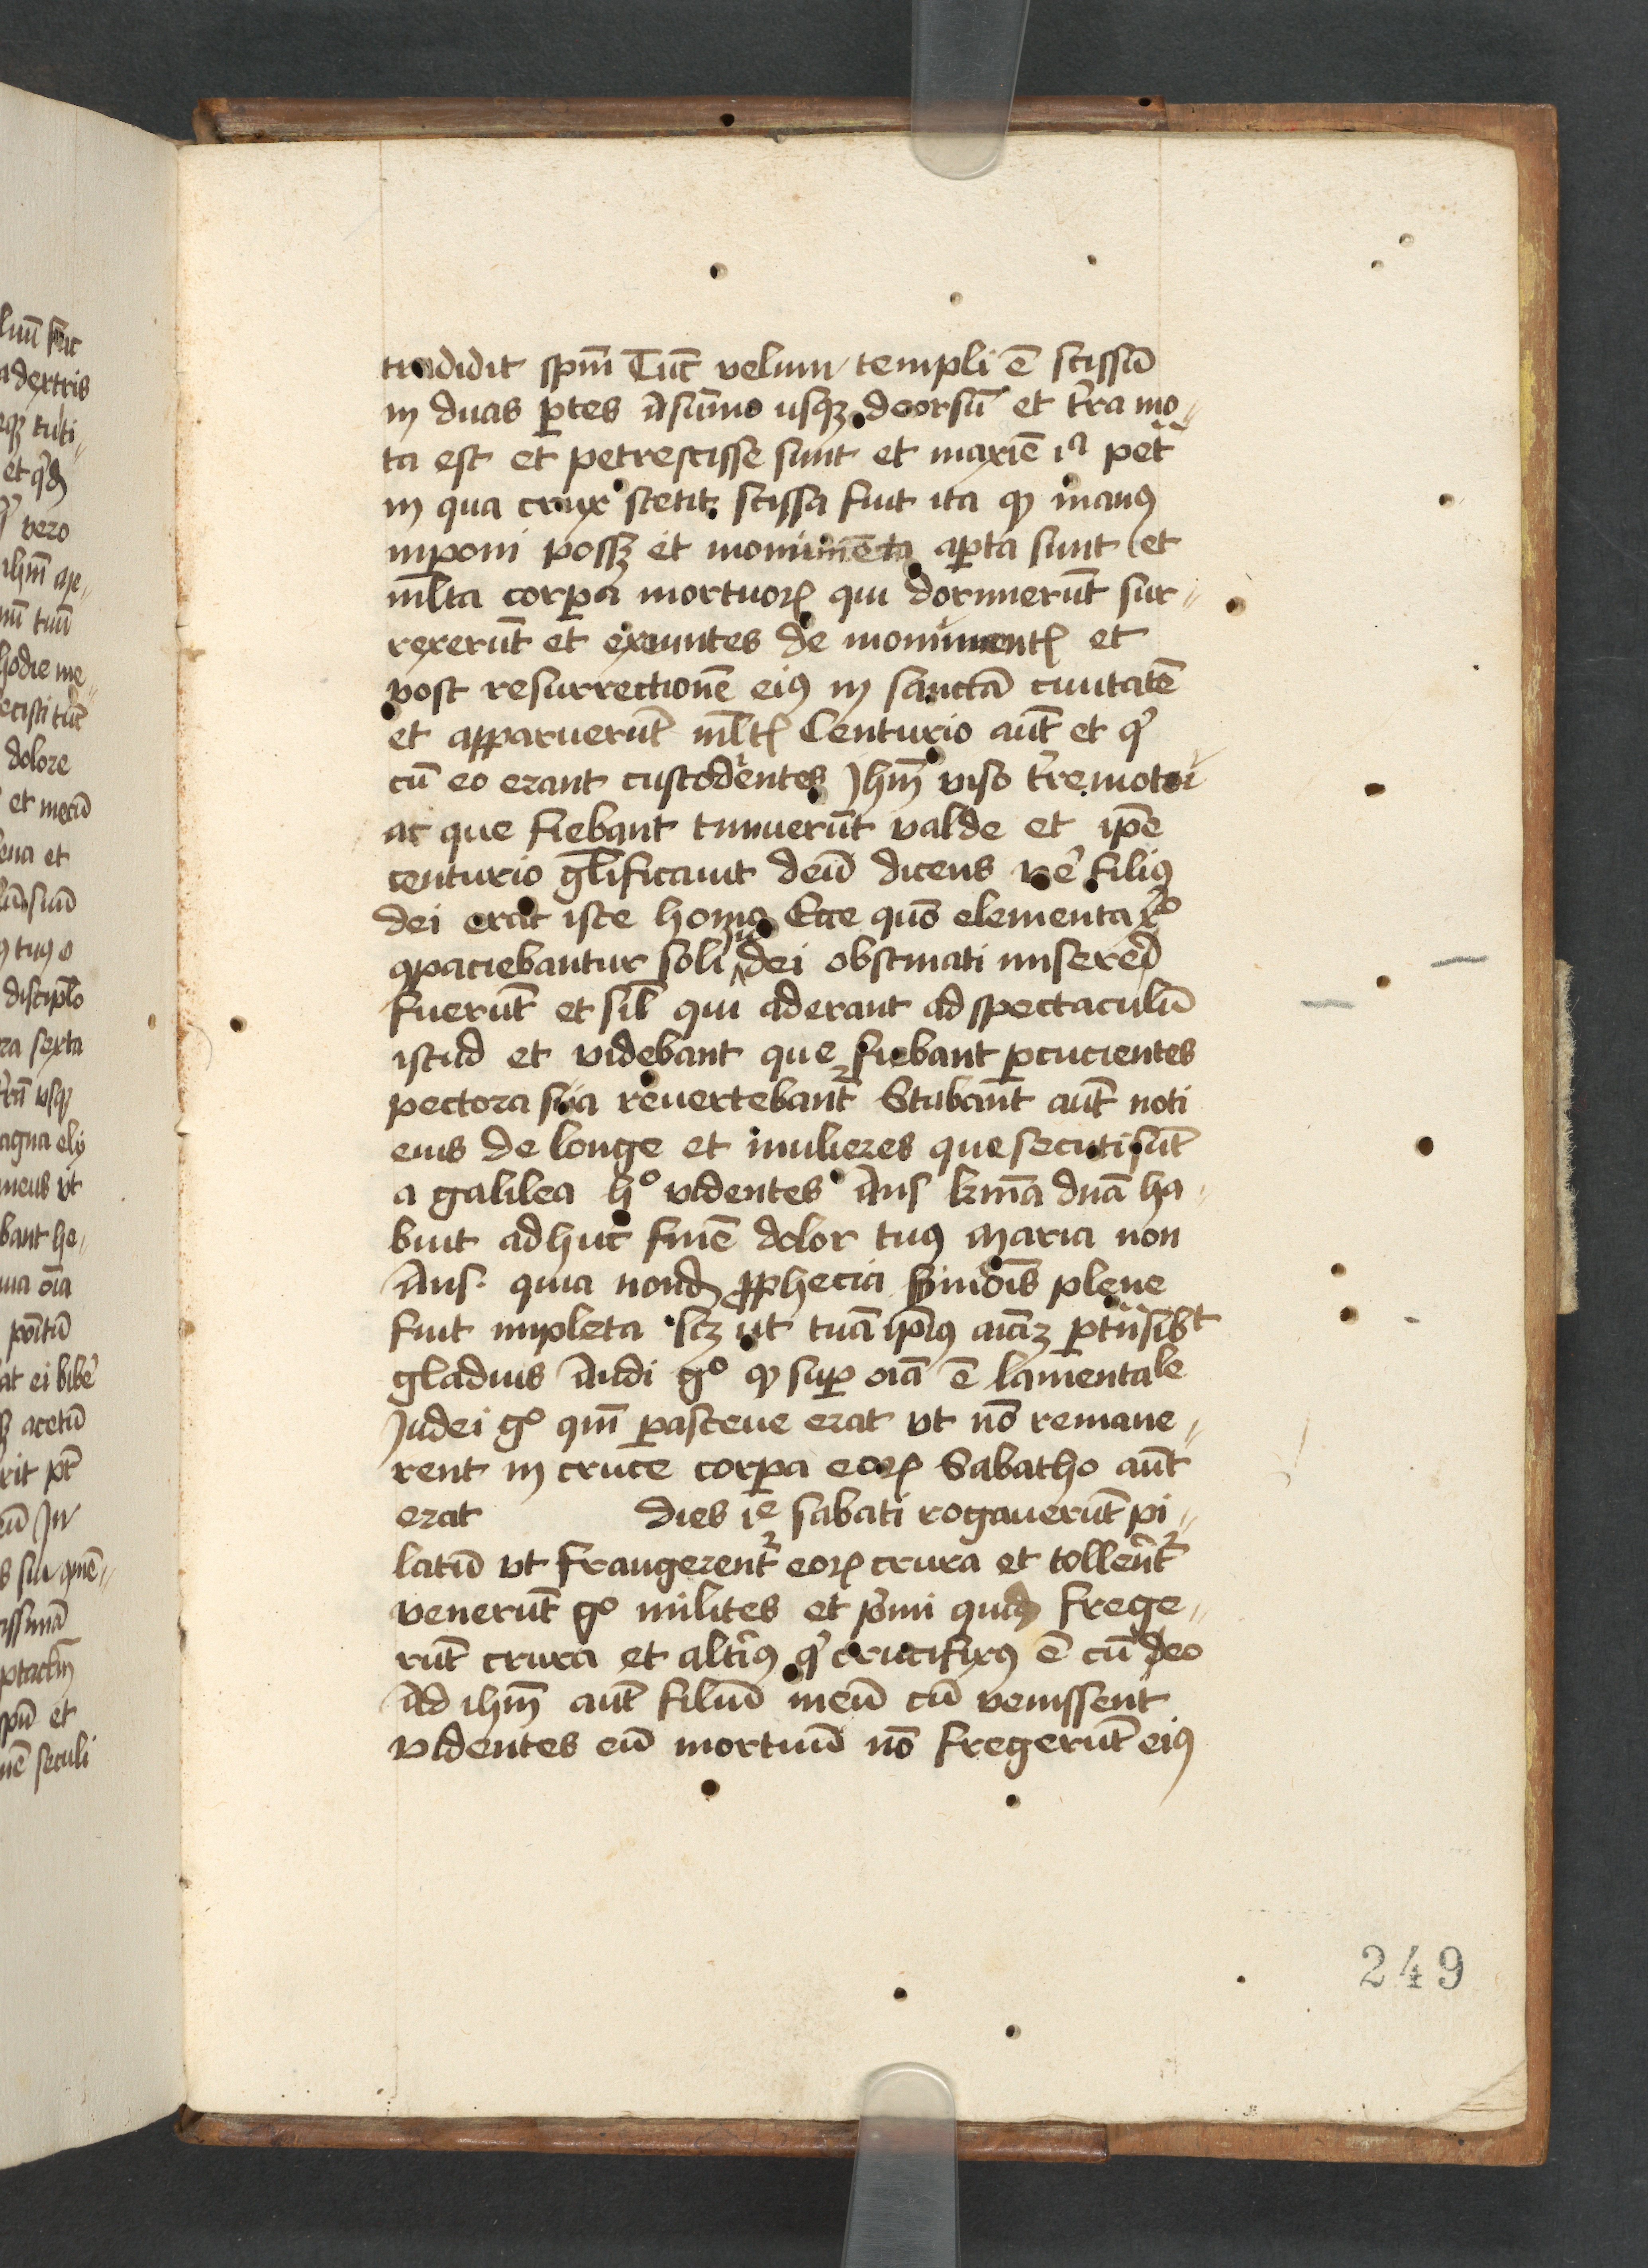 tradidit spm̄ Tūc velum templi ē scissū
in duas p̱tes a sūmo usqꝫ deorsū et t̓ra mo„
ta est et petre scisse sunt et maxīe iᵃ pet̄
in qua crux stetit scissa fuit ita ꝙ manꝰ
inponi possꝫ et monumēta ap̱ta sunt et
ml̄ta corp̱a mortuoꝝ qui dormierūt sur„
rexerūt et exeuntes de monumentꝭ et
post resurrectionē eiꝰ in sanctā ciuitatē
et apparuerūt ml̄tꝭ Centurio aūt et q̓
cū eo erant custodientes Jhm̄ viso t̓remotu
ac que fiebant timuerūt valde et ip̄e
centurio gl̄ificauit deū dicens ve̓ filiꝰ
dei erat iste homo Ecce quō elementa xᵒ
ꝯpaciebantur soli Judei obstinati misered
fuerūt et sil̄ qui aderant ad spectaculū
istud et videbant que fiebant p̱cucientes
pectora sua reuertebant᷑ Stabant aūt noti
eius de longe et mulieres que secuti sūt
a galilea hᵒ videntes Ans kr̄ma dn̄a ha„
buit adhuc finē dolor tuꝰ maria non
Ans. quia nond ꝓphecia Simōis plene
fuit impleta scꝫ ut tuā ip̄iꝰ aīaꝫ p̱tn̄sibt
gladius Audi gᵒ ꝙ sup̱ oīa ē lamentale
Judei gᵒ qm̄ p̱asceue erat vt nō remane„
rent in cruce corp̱a eoꝝ Sabatho aūt
erat dies ie sabati rogauerūt pi„
latū vt frangerent᷑ eoꝝ crura et tollerēt᷑
venerūt gᵒ milites et p̓mi quid frege„
rūt crura et alt̓iꝰ q̓ crucifixꝰ ē cū deo
Ad ihm̄ aūt filiū meū cū venissent
videntes eū mortuū nō fregerūt eiꝰ
249